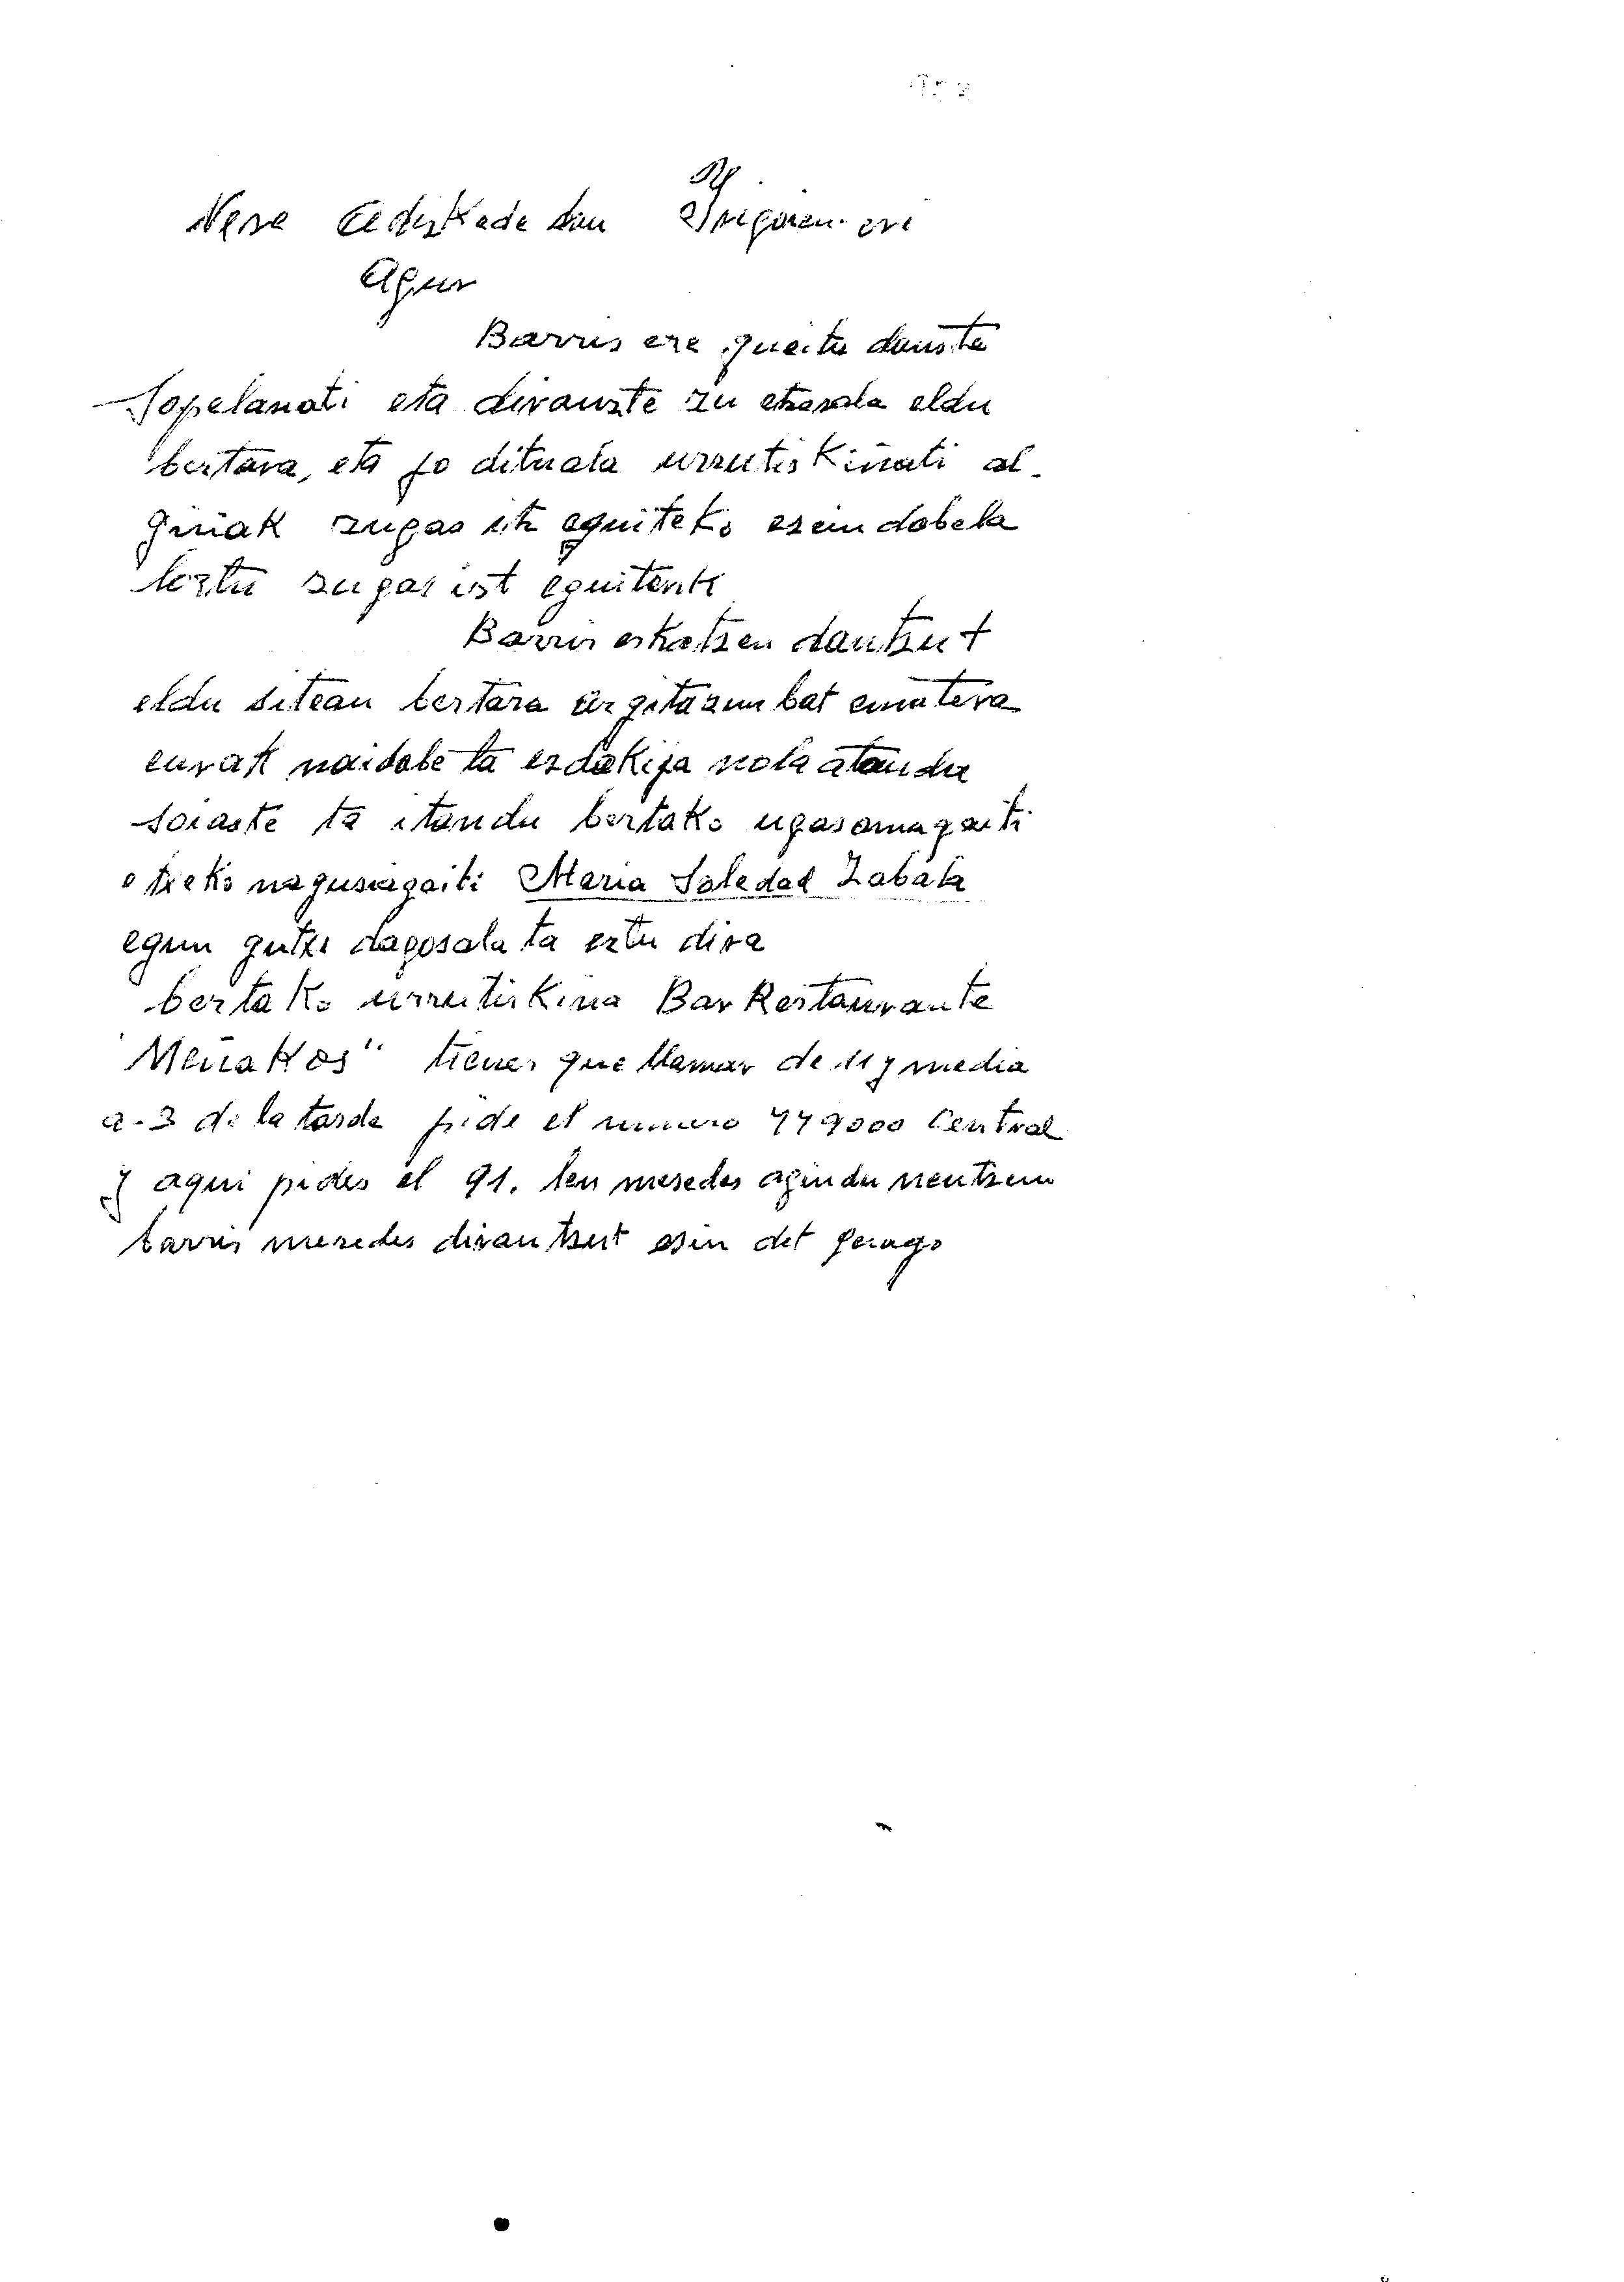 Nere Adiskade dan Irigoien eri
Agur
Barris ere queitu dauste
Sopelanati eta dirauste zu etzarala eldu
bertara, eta jo dituala urrutiskiñati al-
giñak zugas itz eguiteko ezein dabela
lortu zugas itz eguiterik
Barris eskatzen dautzut
eldu sitean bertara argitazun bat emutera
eurak naidabe ta ezdakija nola atendu
soiaste ta itandu bertako ugasamagaiti
otzeko nagusiagaiti Maria Soledad Zabala
egun gutxi dagosala ta eztu dira
bertako urrutiskina Bar Restaurante
Meñakos" tienes que llamar de 11 y media
a - 3 de la tarde pide el numero 449000 Central
y aqui pides el 91. len mesedes agindu neutzun
barris mesedes dirautzut esin det geiago